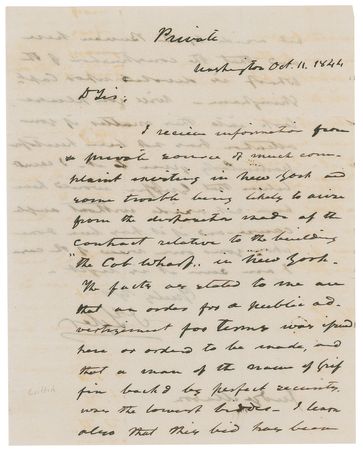 Private
Washington Oct. 11. 1844
D Sir,
I receive information from
a private source of much com-
plaint existing in New York and
some trouble being likely to arise
from the disposition made of the
contract relative to the building
"the Cob Wharf" in New York.
The facts as stated to me are
that an order for a public ad-
vertisement for terms was issued
here or ordered to be made, and
that a man of the name of Grif
fin back'd by perfect security
was the lowest bidder. I learn
also that this bid has been
Griffin